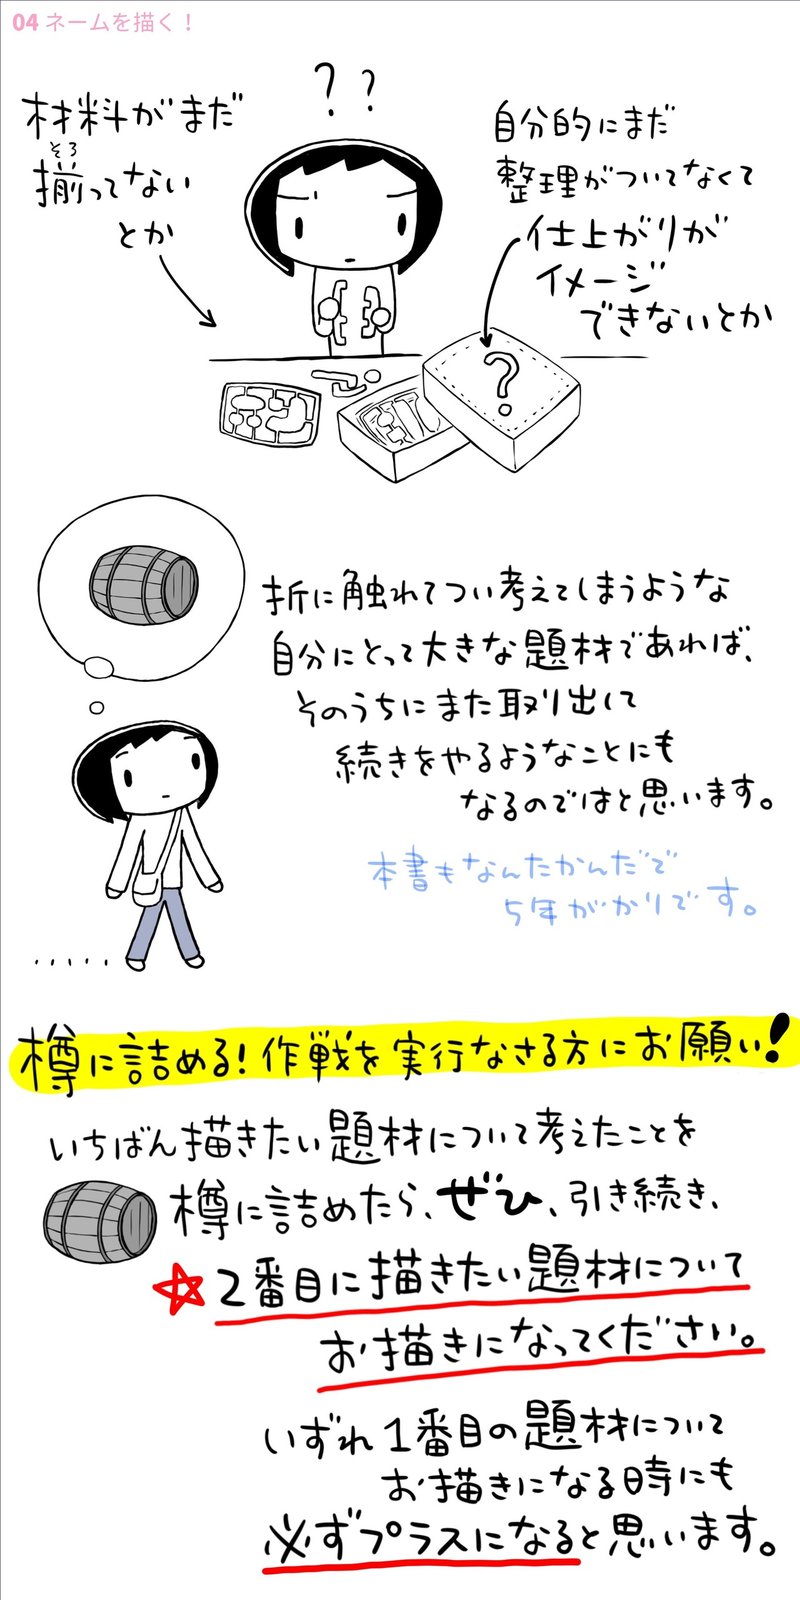 04 ネームを描く！
? ?
材料がまだ
そろ
揃ってない
とか
自分的にまだ
整理がついてなくて
仕上がりが
イメージ
できないとか
?
折に触れてつい考えてしまうような
自分にとって大きな題材であれば、
そのうちにまた取り出して
続きをやるようなことにも
なるのではと思います。
本書もなんだかんだで
5年がかりです。
樽に詰める！作戦を実行なさる方にお願い！
いちばん描きたい題材について考えたことを
樽に詰めたら、ぜひ、引き続き、
☆2番目に描きたい題材について
お描きになってください。
いずれ1番目の題材について
お描きになる時にも
必ずプラスになると思います。